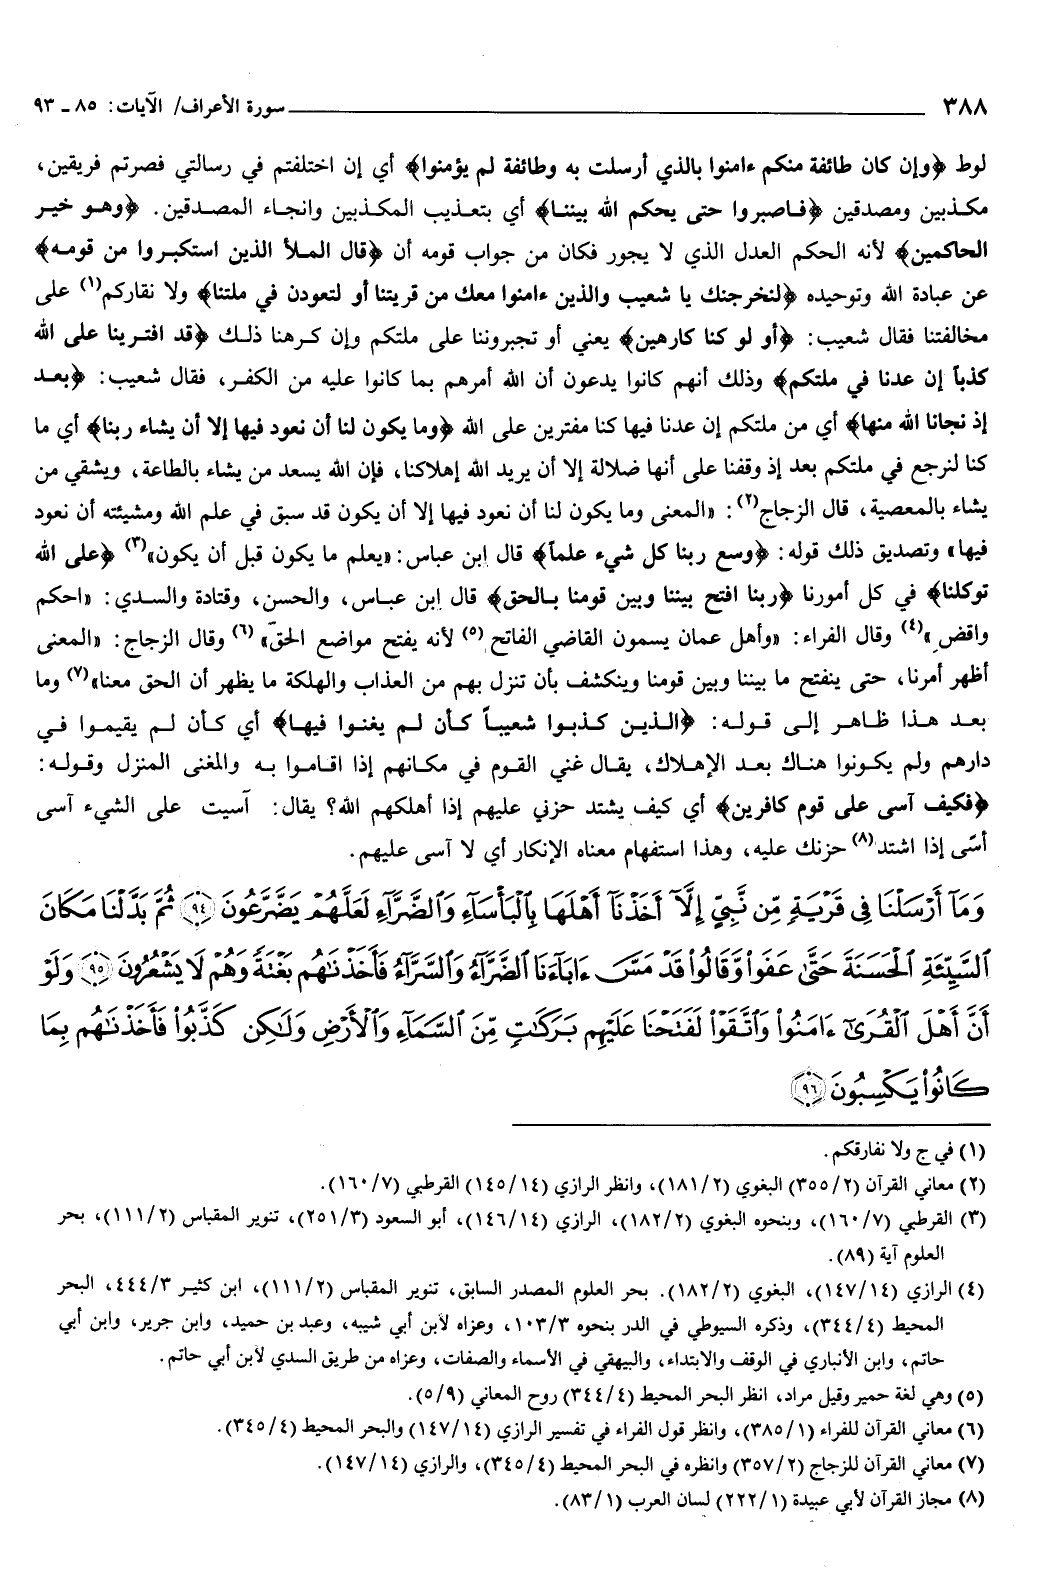 ٣٨٨ سورة الأعراف/ الآيات: ٨٥ ـ ٩٣
لوط ﴿وإن كان طائفة منكم ءامنوا بالذي أرسلت به وطائفة لم يؤمنوا﴾ أي إن اختلفتم في رسالتي فصرتم فريقين،
مكذبين ومصدقين ﴿فاصبروا حتى يحكم الله بيننا﴾ أي بتعذيب المكذبين وانجاء المصدقين. ﴿وهو خير
الحاكمين﴾ لأنه الحكم العدل الذي لا يجور فكان من جواب قومه أن ﴿قال الملأ الذين استكبروا من قومه﴾
عن عبادة الله وتوحيده ﴿لنخرجنك يا شعيب والذين ءامنوا معك من قريتنا أو لتعودن في ملتنا﴾ ولا نقاركم(١) على
مخالفتنا فقال شعيب: ﴿أو لو كنا كارهين﴾ يعني أو تجبروننا على ملتكم وإن كرهنا ذلك ﴿قد افترينا على الله
كذباً إن عدنا في ملتكم﴾ وذلك أنهم كانوا يدعون أن الله أمرهم بما كانوا عليه من الكفر، فقال شعيب: ﴿بعد
إذ نجانا الله منها﴾ أي من ملتكم إن عدنا فيها كنا مفترين على الله ﴿وما يكون لنا أن نعود فيها إلا أن يشاء ربنا﴾ أي ما
كنا لنرجع في ملتكم بعد إذ وقفنا على أنها ضلالة إلا أن يريد الله إهلاكنا، فإن الله يسعد من يشاء بالطاعة، ويشقي من
يشاء بالمعصية، قال الزجاج(٢): «المعنى وما يكون لنا أن نعود فيها إلا أن يكون قد سبق في علم الله ومشيئته أن نعود
فيها» وتصديق ذلك قوله: ﴿وسع ربنا كل شيء علماً﴾ قال إبن عباس: «يعلم ما يكون قبل أن يكون»(٣) ﴿على الله
توكلنا﴾ في كل أمورنا ﴿ربنا افتح بيننا وبين قومنا بالحق﴾ قال إبن عباس، والحسن، وقتادة والسدي: «احكم
واقضِ»(٤) وقال الفراء: «وأهل عمان يسمون القاضي الفاتح(٥) لأنه يفتح مواضع الحقّ»(٦) وقال الزجاج: «المعنى
أظهر أمرنا، حتى ينفتح ما بيننا وبين قومنا وينكشف بأن تنزل بهم من العذاب والهلكة ما يظهر أن الحق معنا»(٧) وما
بعد هذا ظاهر إلى قوله: ﴿الذين كذبوا شعيباً كأن لم يغنوا فيها﴾ أي كأن لم يقيموا في
دارهم ولم يكونوا هناك بعد الإهلاك، يقال غني القوم في مكانهم إذا اقاموا به والمغنى المنزل وقوله:
﴿فكيف آسى على قوم كافرين﴾ أي كيف يشتد حزني عليهم إذا أهلكهم الله؟ يقال: آسيت على الشيء آسى
أسًى إذا اشتد(٨) حزنك عليه، وهذا استفهام معناه الإنكار أي لا آسى عليهم.
وَمَآ أَرْسَلْنَا فِى قَرْيَةٍ مِّن نَّبِىٍّ إِلَّآ أَخَذْنَآ أَهْلَهَا بِٱلْبَأْسَآءِ وَٱلضَّرَّآءِ لَعَلَّهُمْ يَضَّرَّعُونَ ٩٤ ثُمَّ بَدَّلْنَا مَكَانَ
ٱلسَّيِّئَةِ ٱلْحَسَنَةَ حَتَّىٰ عَفَوا۟ وَّقَالُوا۟ قَدْ مَسَّ ءَابَآءَنَا ٱلضَّرَّآءُ وَٱلسَّرَّآءُ فَأَخَذْنَٰهُم بَغْتَةً وَهُمْ لَا يَشْعُرُونَ ٩٥ وَلَوْ
أَنَّ أَهْلَ ٱلْقُرَىٰٓ ءَامَنُوا۟ وَٱتَّقَوْا۟ لَفَتَحْنَا عَلَيْهِم بَرَكَٰتٍ مِّنَ ٱلسَّمَآءِ وَٱلْأَرْضِ وَلَٰكِن كَذَّبُوا۟ فَأَخَذْنَٰهُم بِمَا
كَانُوا۟ يَكْسِبُونَ ٩٦
(١) في ج ولا نفارقكم.
(٢) معاني القرآن (٣٥٥/٢) البغوي (١٨١/٢)، وانظر الرازي (١٤٥/١٤) القرطبي (١٦٠/٧).
(٣) القرطبي (١٦٠/٧)، وبنحوه البغوي (١٨٢/٢)، الرازي (١٤٦/١٤)، أبو السعود (٢٥١/٣)، تنوير المقباس (١١١/٢)، بحر
العلوم آية (٨٩).
(٤) الرازي (١٤٧/١٤)، البغوي (١٨٢/٢). بحر العلوم المصدر السابق، تنوير المقباس (١١١/٢)، ابن كثير ٤٤٤/٣، البحر
المحيط (٣٤٤/٤)، وذكره السيوطي في الدر بنحوه ١٠٣/٣، وعزاه لأبن أبي شيبه، وعبد بن حميد، وابن جرير، وابن أبي
حاتم، وابن الأنباري في الوقف والابتداء، والبيهقي في الأسماء والصفات، وعزاه من طريق السدي لأبن أبي حاتم.
(٥) وهي لغة حمير وقيل مراد، انظر البحر المحيط (٣٤٤/٤) روح المعاني (٥/٩).
(٦) معاني القرآن للفراء (٣٨٥/١)، وانظر قول الفراء في تفسير الرازي (١٤٧/١٤) والبحر المحيط (٣٤٥/٤).
(٧) معاني القرآن للزجاج (٣٥٧/٢) وانظره في البحر المحيط (٣٤٥/٤)، والرازي (١٤٧/١٤).
(٨) مجاز القرآن لأبي عبيدة (٢٢٢/١) لسان العرب (٨٣/١).